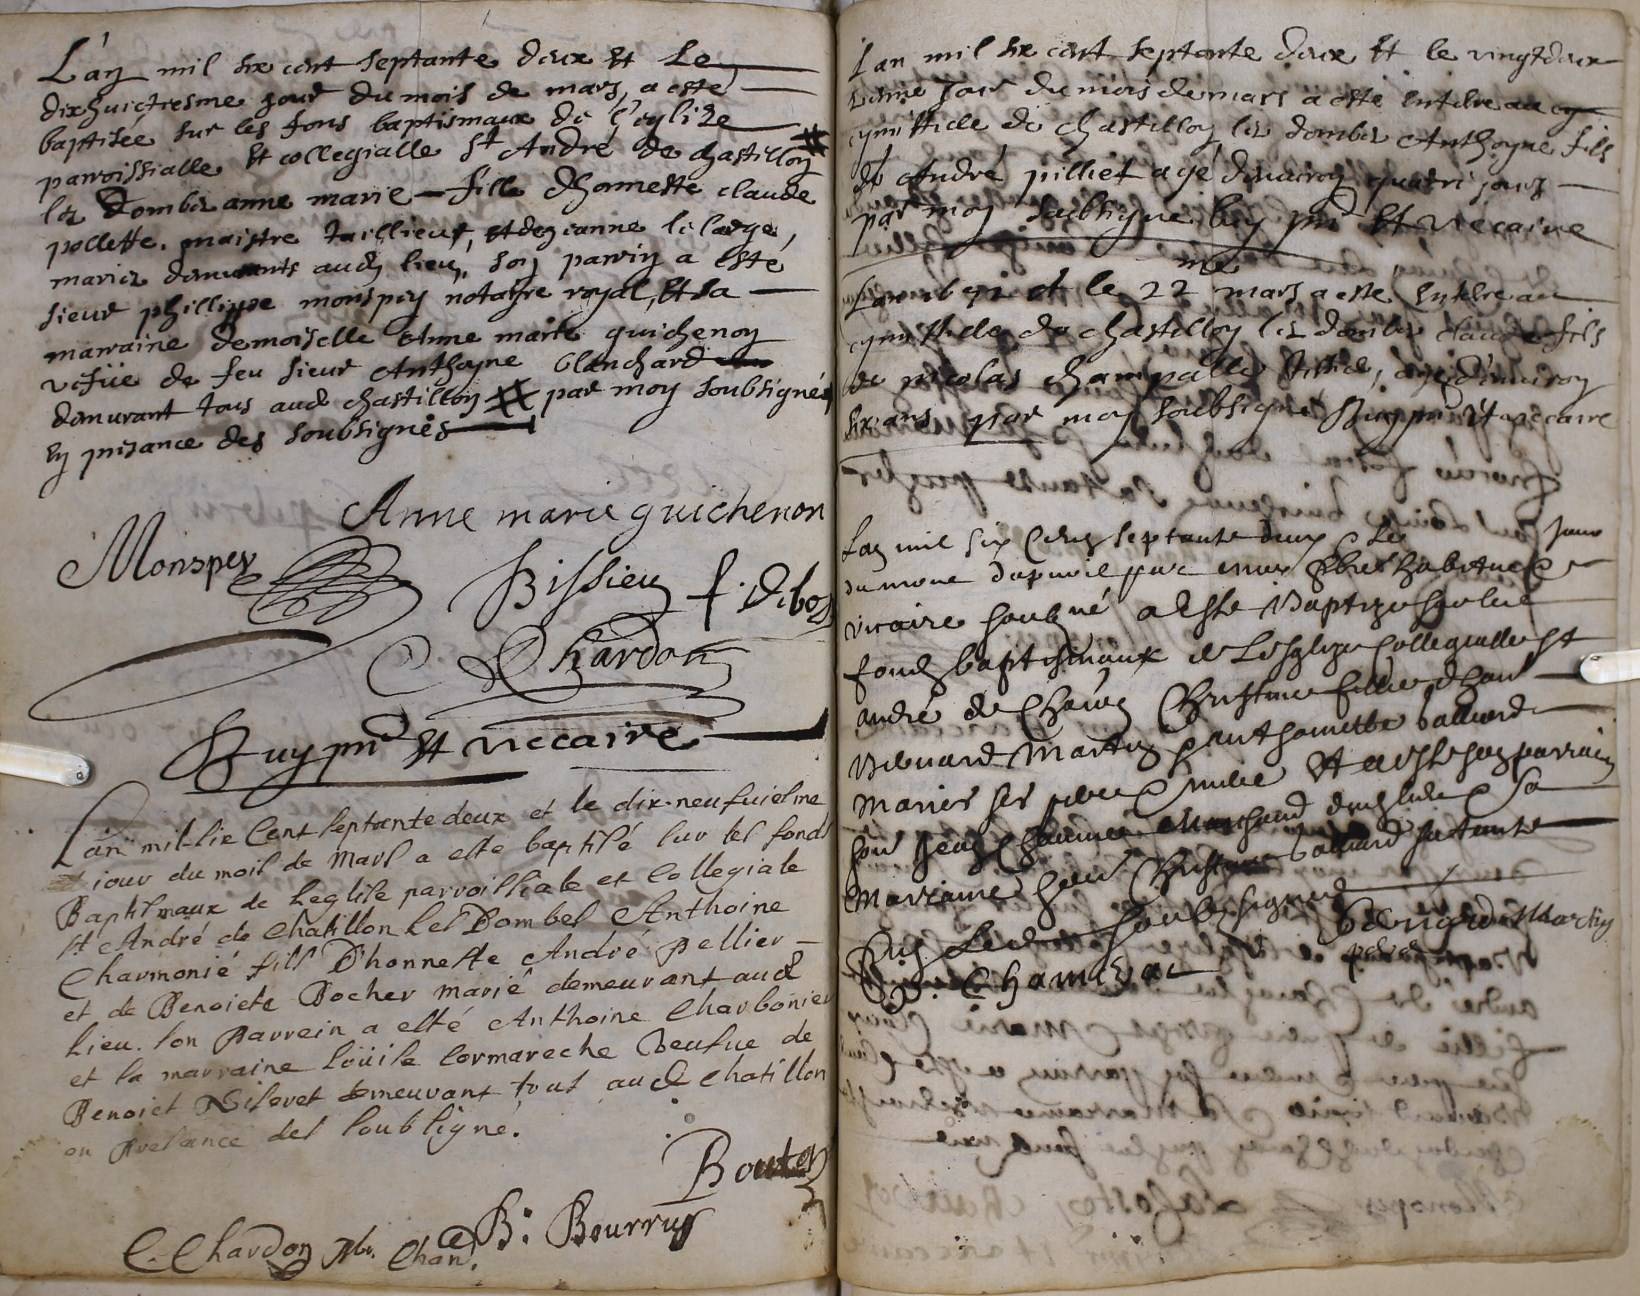 L'an mil six cent septante deux et Le
dixhuictiesme jour du mois de mars, a esté
baptisée sur les fons baptismaux de l'eglize
parroissialle et collegialle St André de chastillon
les Dombes anne marie fille d'honneste claude
pollette, maistre taillieur, et de jeanne le large,
mariés demeurants aud lieu, son parrin a esté
sieur phillippe monspey notayre royal, Et sa
marraine demoiselle Anne marie guichenon
vefüe de feu sieur Anthoyne blanchard
demurant tous aud chastillon par moy soubsigné
en presance des soubsignés
Anne marie guichenon
Monspey Bissieu f. Debos
C Chardon
Buy pre et viccaire
L'an mil sie Cent septante deux et le dix-neufuiesme
iour du mois de Mars a esté baptisé sur les fonds
Baptismaux de leglise parroissiale et Collegiale
St André de Chatillon Les Dombes Anthoine
Charmonié fils D'honneste André Pellier
et de Benoiete Bocher marié demeurant aud
lieu. son Parrein a esté Anthoine Charbonier
et la marraine Loüise Cormareche Veufue de
Benoict demeurant tous aud Chatillon
en Presance des soubsigné.
Bouten
B. Bourruy
C. Chardon Pbr. Chan.
L'an mil six cent septante deux et le vingtdeux
iesme Jour du mois de mars a esté Entere au
cymittiere de chastillon les dombes Anthoyne fils
de André pillier agé d'enuiron quatre jours
par moy soubsigne buy pre et viccaire
L'an et le 22 mars a esté Entere au
cymittiere de chastillon les dombes claude fils
de nicolas champalle, agé d'enuiron
six ans par moy soubsigne Buy pre et viccaire
Lan mil six Cens septante deux Le jour
du mois
vicaire soubné a Esté Baptize sur les
fonds baptismaux de Lesglize Collegialle St
André de Chaon Christine fillie d'hon
Benard Martin anthoinette ballard
Mariés ses pere mere Et a esté son parrain
hon Jean Marchand dud lieu sa
Marraine hon Christine ballard sa tante
Les soubsignes Benard Martin
pere
Chamerac